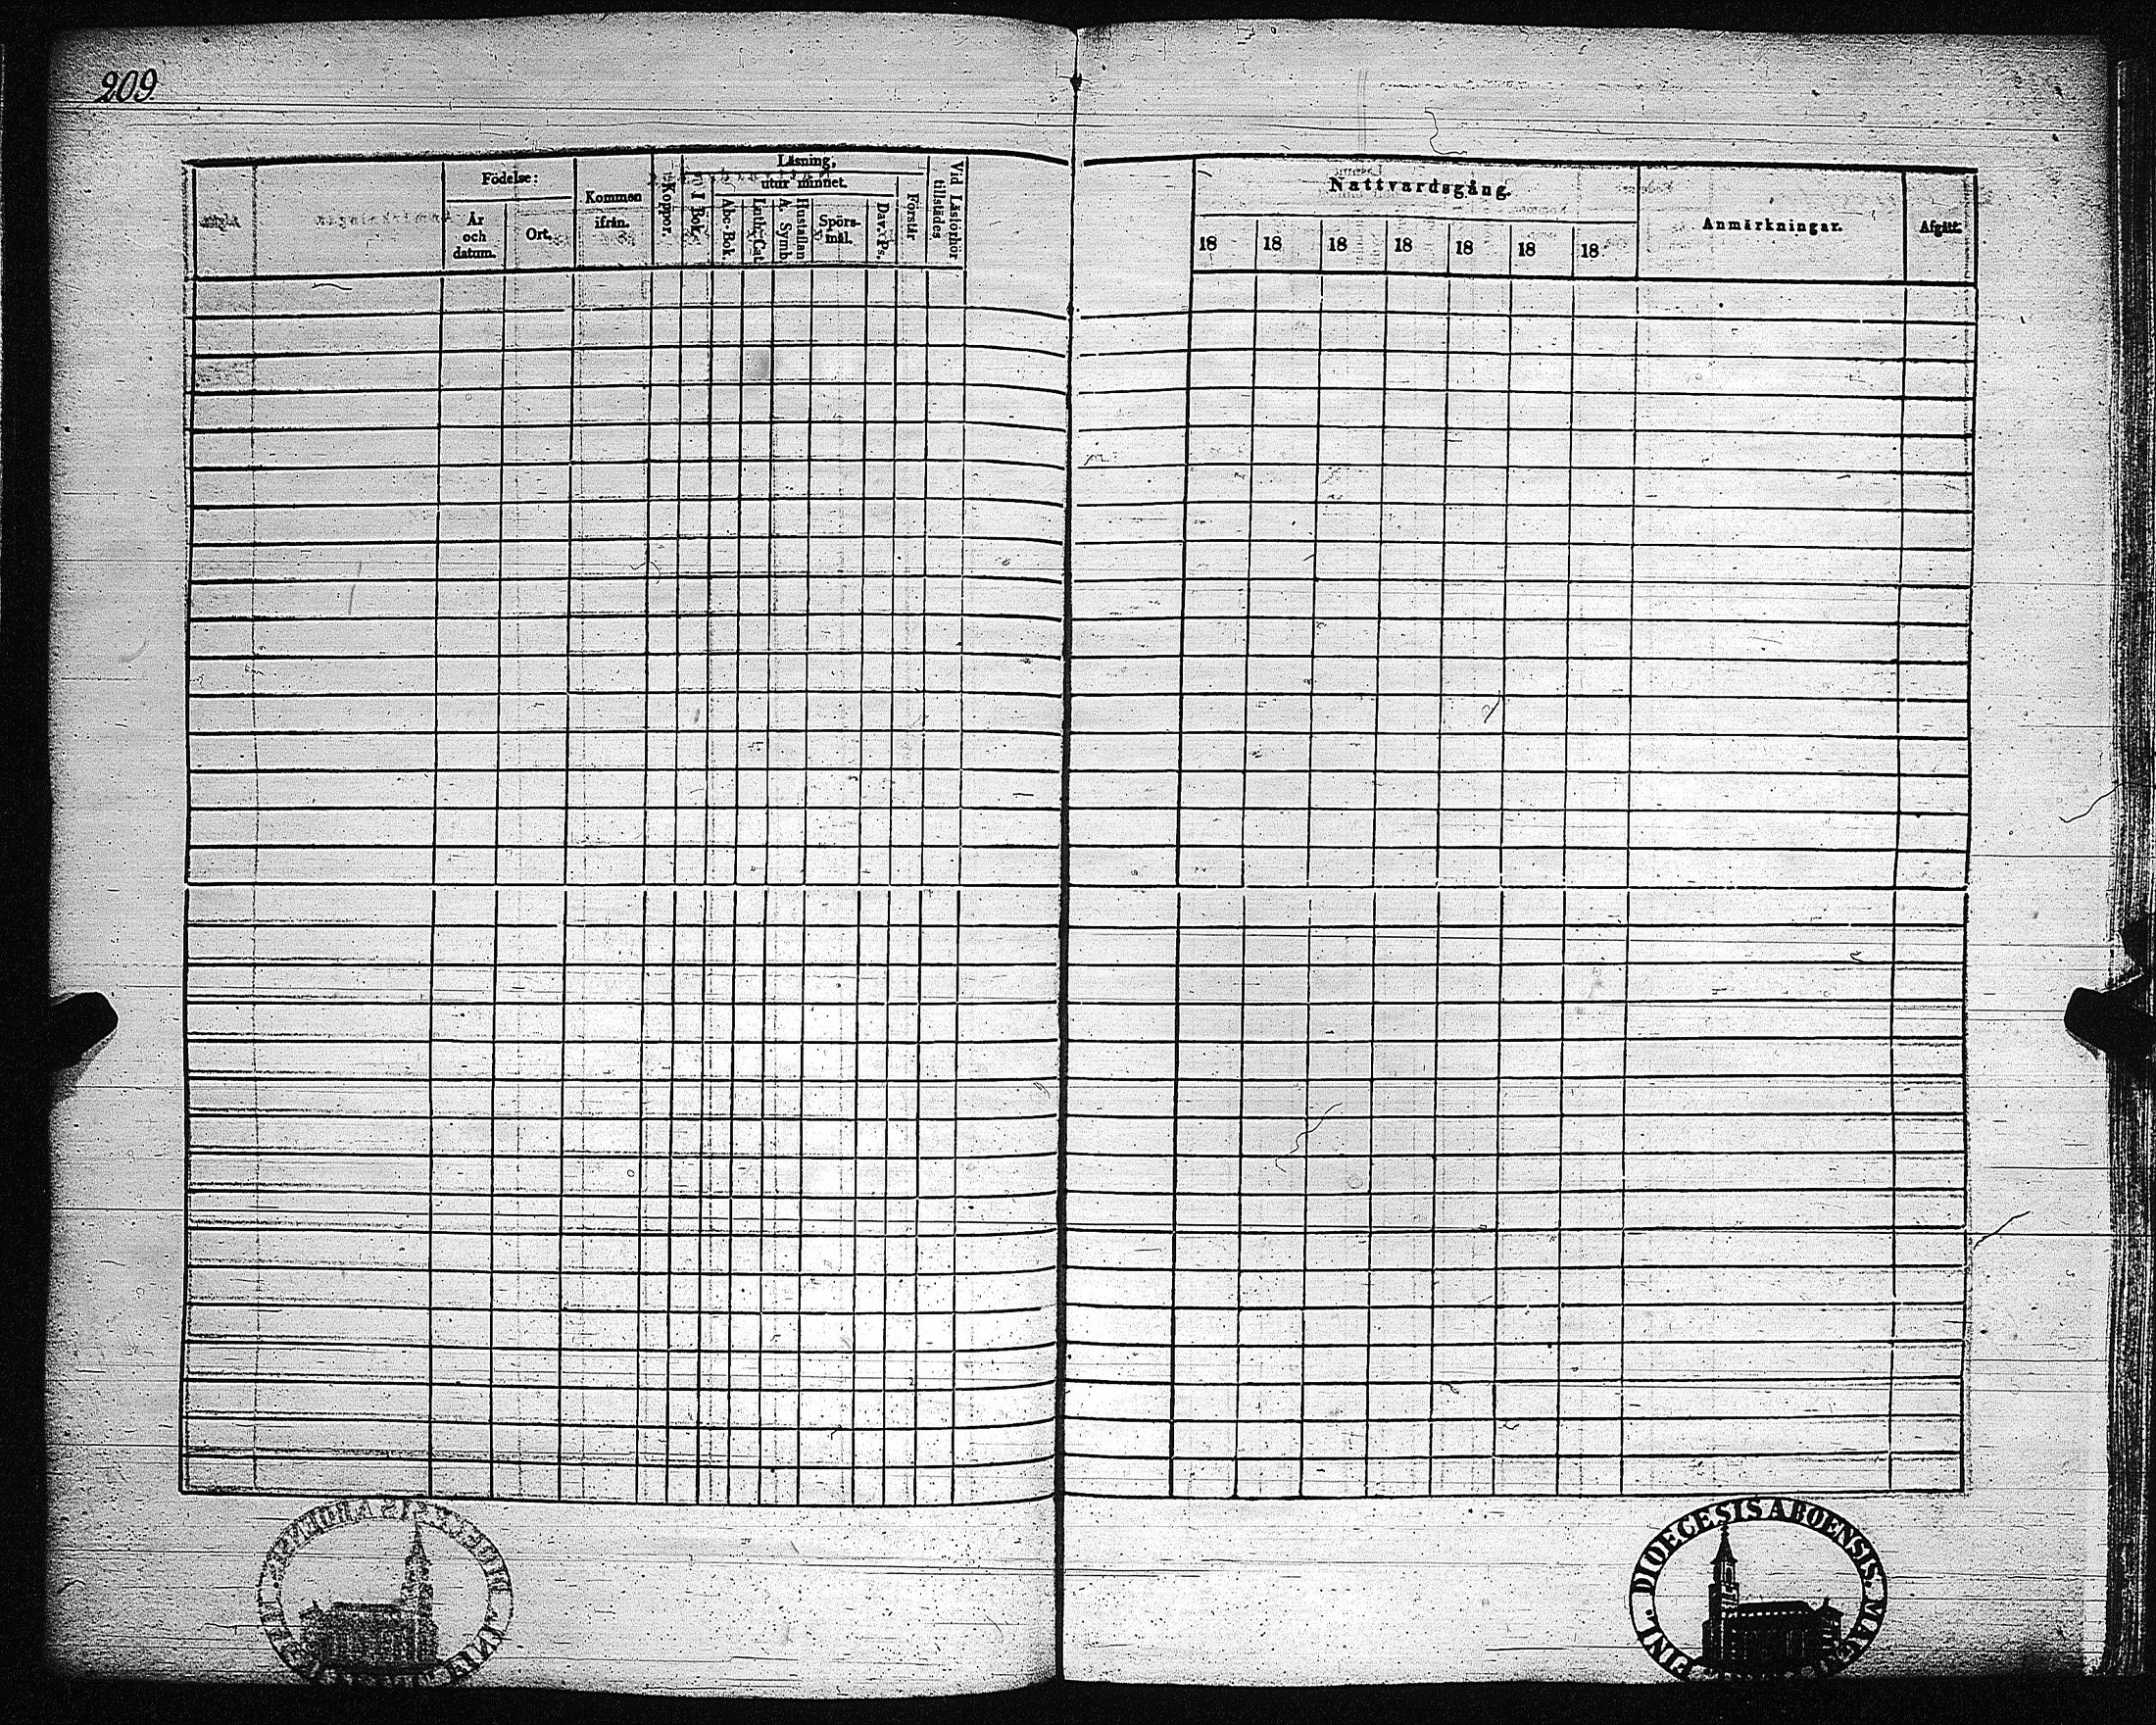 209
Födelse:
År
och
datum.
Ort.
Kommen
ifrån.
Koppor.
Läsning,
I Bok.
utur minnet.
Abc-Bok.
Luth. Cat.
A. Symb.
Hustaflan
Spörs-
mål.
Dav. Ps.
Förstår
Vid Läsförhör
tillstädes
Nattvardsgång.
18 18 18 18 18 18 18
Anmärkningar.
Afgått.
FINL. DIOECESIS ABOENSIS.